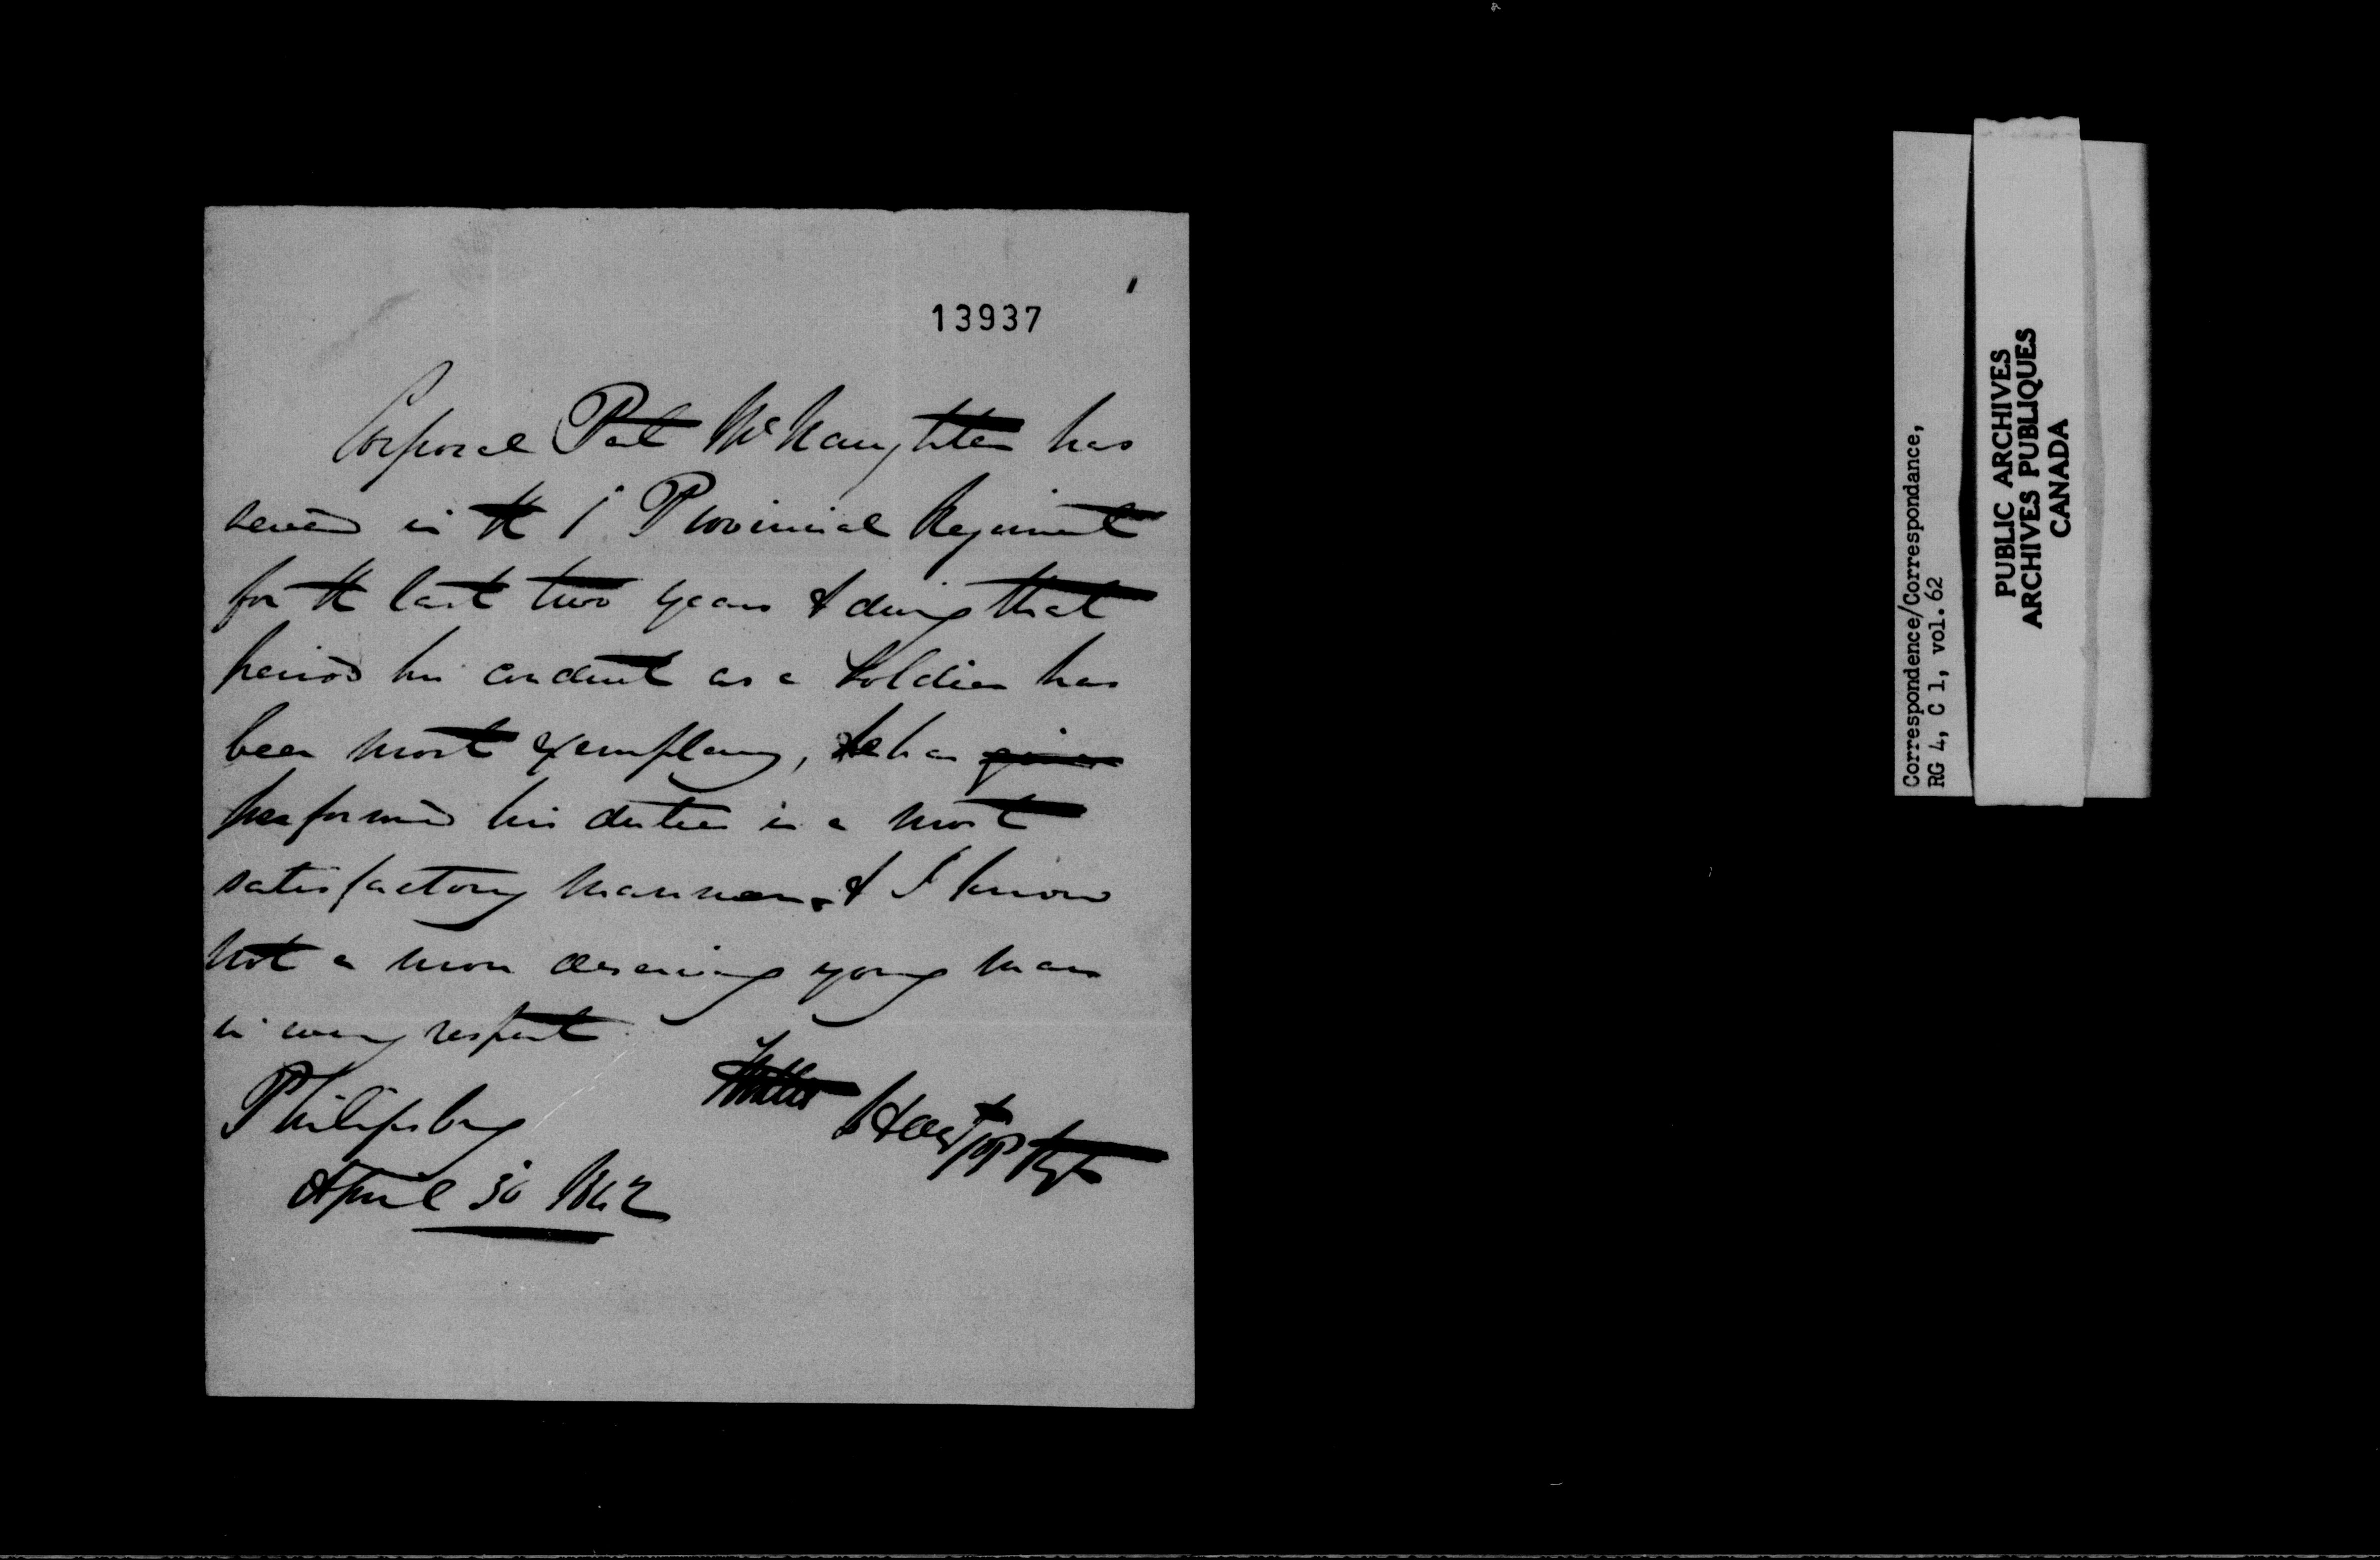 13937
Corporal Pat McNaughten has
served in the 1 Provincial Regiment
for the last two years & during that
period his conduct as a Soldier has
been most exemplary, he has given
performed his duties in a most
satisfactory manner & I know
not a more deserving young man
in every respect
Philipsburg
April 30 1842
Correspondence/Correspondance,
RG 4, C 1, vol. 62
PUBLIC ARCHIVES
ARCHIVES PUBLIQUES
CANADA